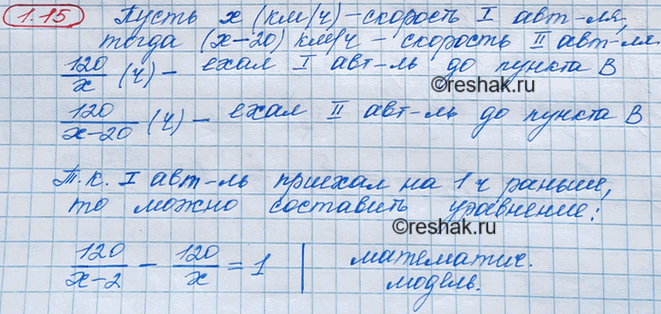 1.15 Пусть x (км/ч) – скорость I авт-ля,
тогда (x–20) км/ч – скорость II авт-ля.
120/x (ч) – ехал I авт-ль до пункта B
©reshak.ru
120/(x–20) (ч) – ехал II авт-ль до пункта B
Т.к. I авт-ль приехал на 1 ч раньше,
то можно составить уравнение:
©reshak.ru
120/(x–2) – 120/x = 1 | математич.
модель.